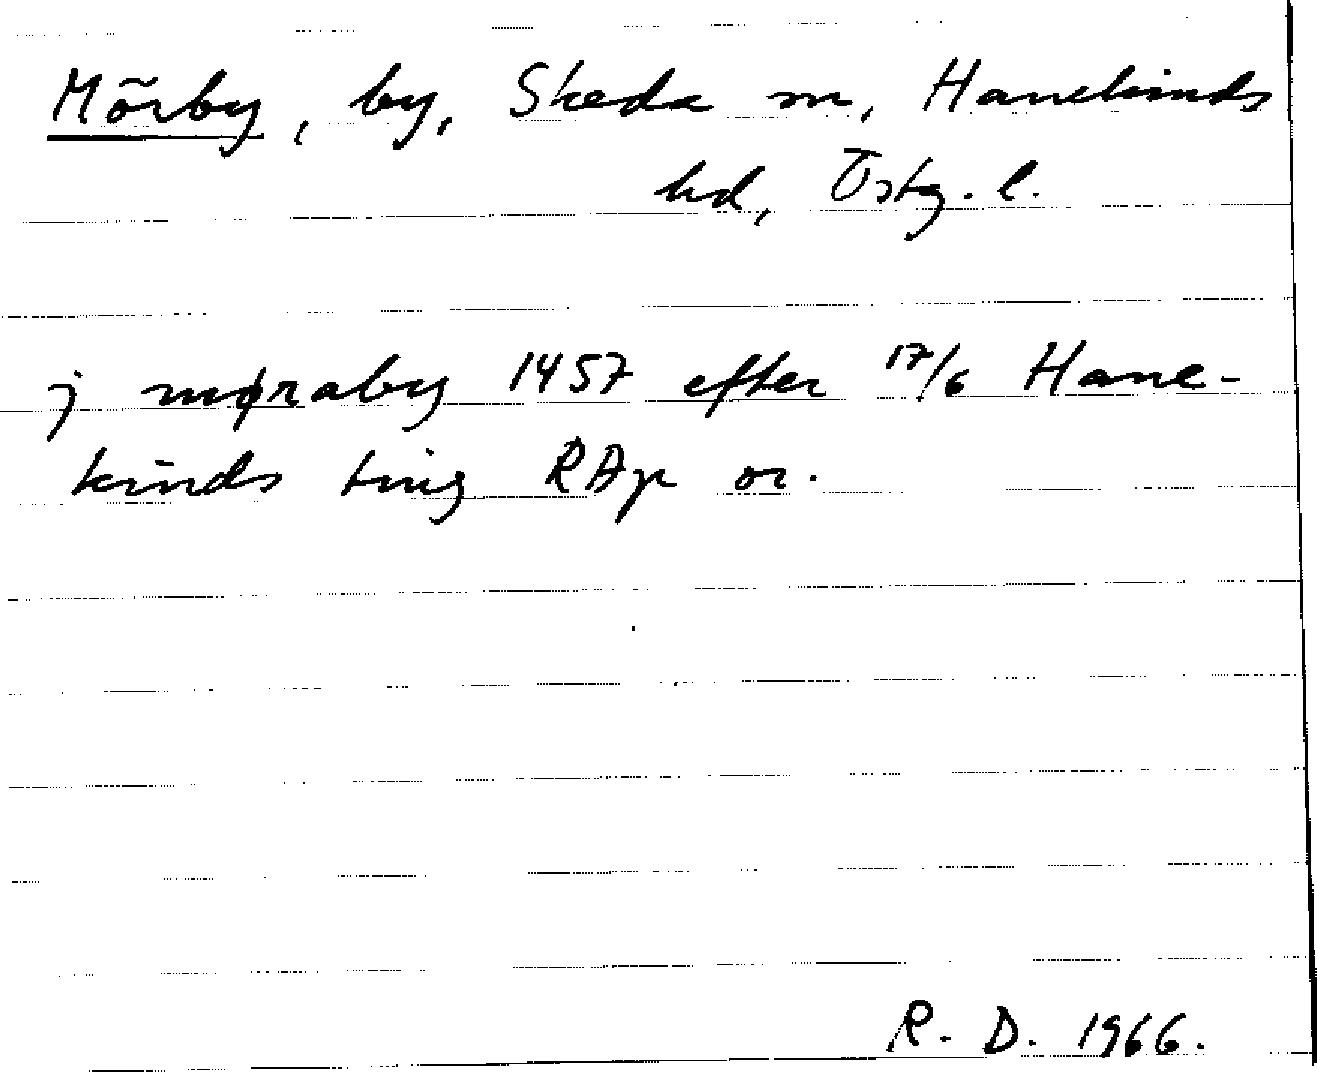 Mörby, by, Skeda sn, Hanekinds
hd, Östg. l.
j møraby 1457 efter 17/6 Hane-
kinds ting RAp or.
R. D. 1966.